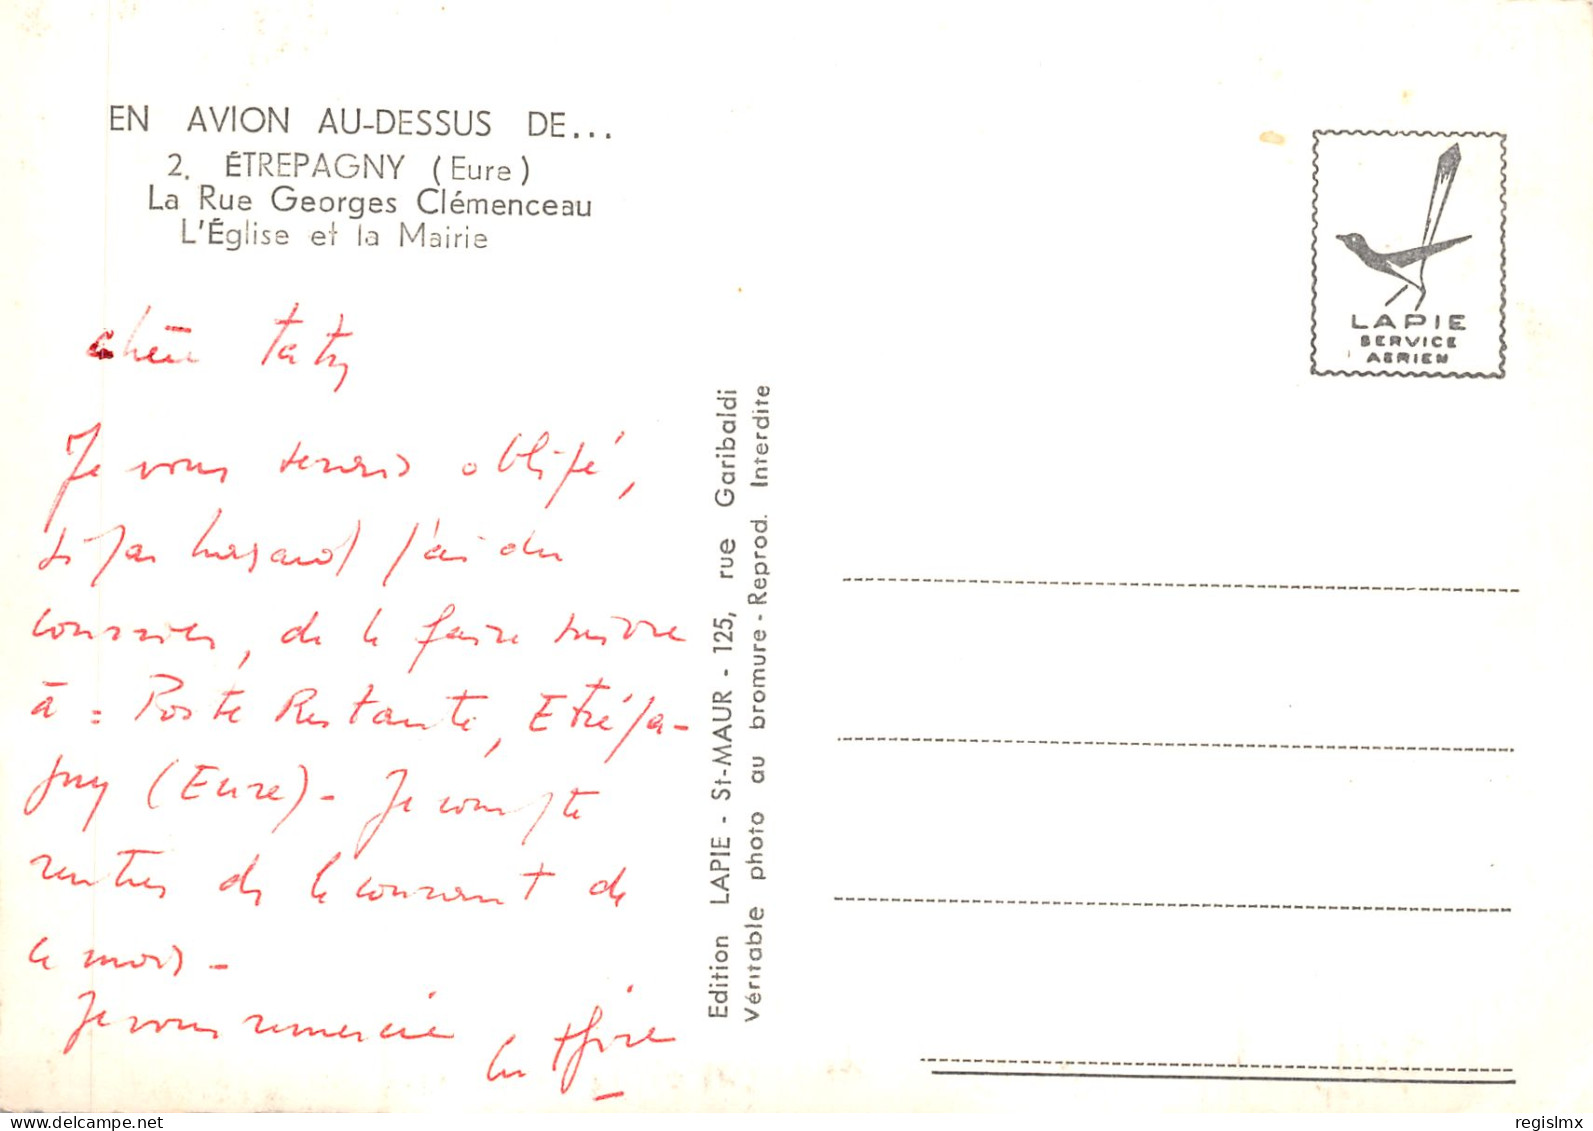 EN AVION AU-DESSUS DE...
2. ÉTREPAGNY (Eure)
La Rue Georges Clémenceau
L'Église et la Mairie
chère Taty
Je vous serais obligé,
si par hasard j'ai du
courrier, de le faire suivre
à = Poste Restante, Etrépa-
gny (Eure) - Je compte
rentrer ds le courant de
ce mois -
Je vous remercie
Edition LAPIE - St-MAUR - 125, rue Garibaldi
Véritable photo au bromure - Reprod. Interdite
LAPIE
SERVICE
AERIEN
regislmx